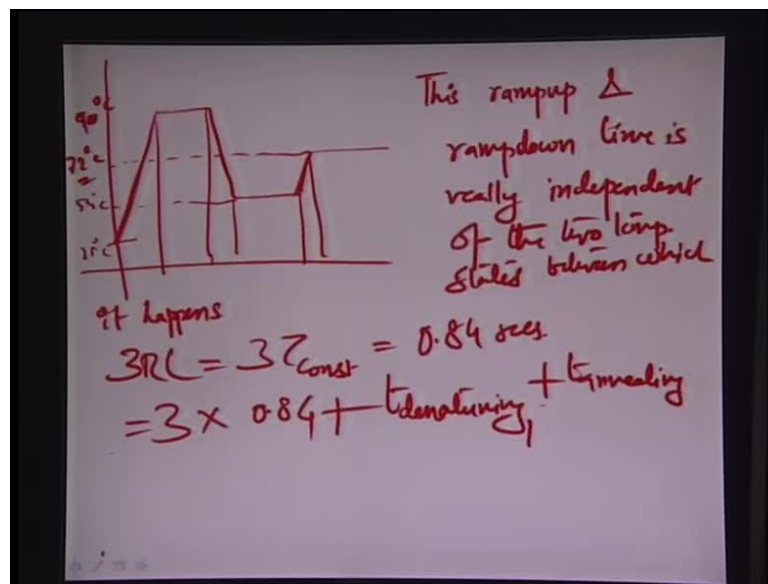 This rampup &
rampdown time is
really independent
of the two temp.
states between which
90°C
72°C
it happens
3RC = 3τconst = 0.84 secs
= 3 × 0.84 + tdenaturing, + tannealing